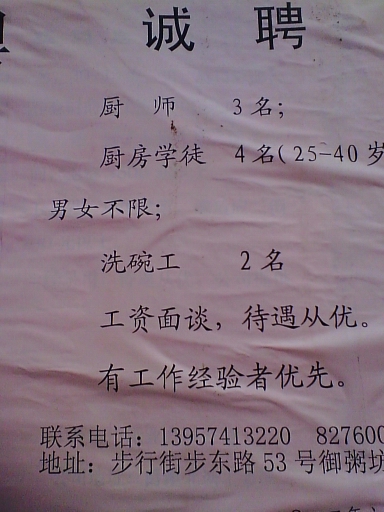 诚 聘
厨 师 3名；
厨房学徒 4名(25-40岁
男女不限；
洗碗工 2名
工资面谈，待遇从优。
有工作经验者优先。
联系电话：13957413220 827600
地址：步行街步东路53号御粥坊